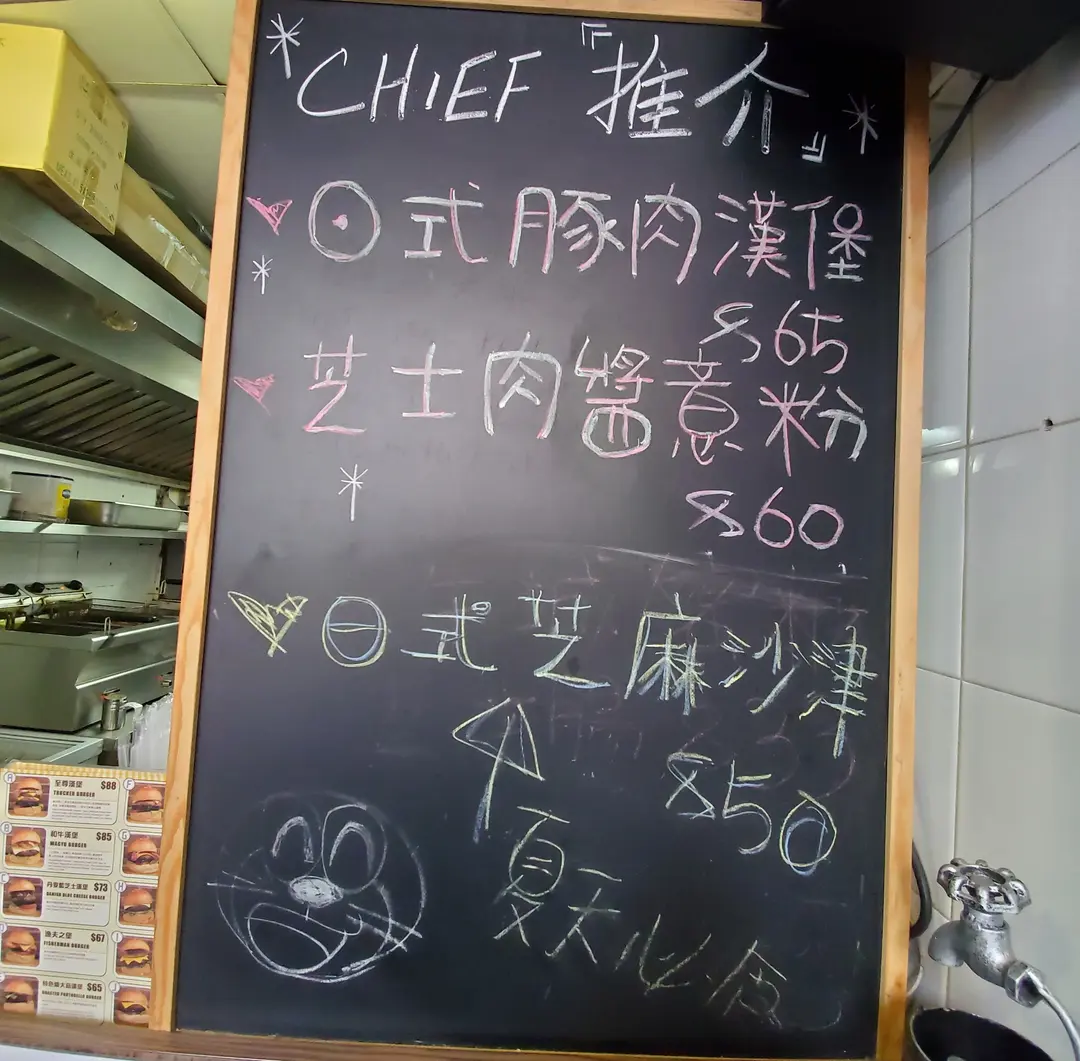 CHIEF『推介』
日式豚肉漢堡
$65
芝士肉醬意粉
$60
日式芝麻沙津
$50
夏天必食
A
至尊漢堡
$88
TRUCKER BURGER
F
B
和牛漢堡
$85
WAGYU BURGER
G
C
丹麥藍芝士漢堡
$73
DANISH BLUE CHEESE BURGER
H
漁夫之堡
$67
FISHERMAN BURGER
I
$65
ROASTED PORTOBELLO BURGER
J